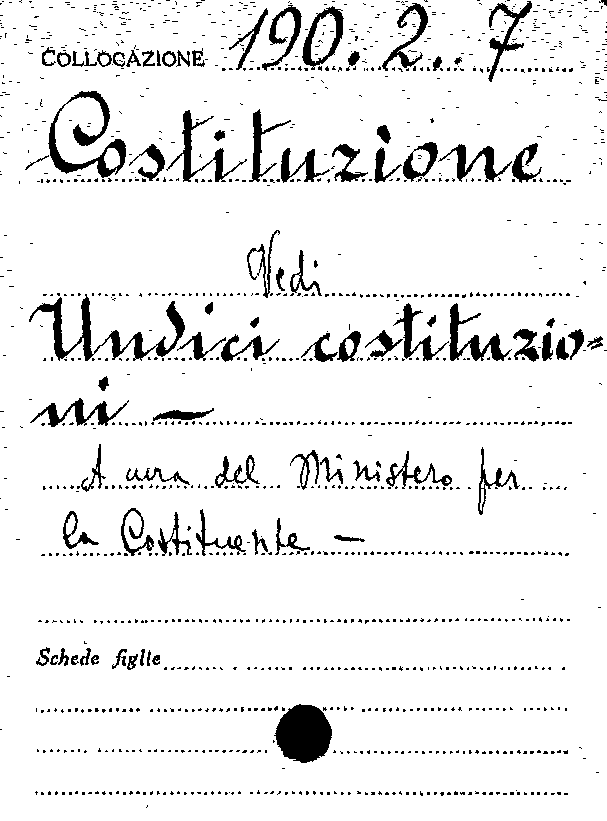 COLLOCAZIONE 190. 2. 7
Costituzione
Vedi
Undici costituzio=
ni —
A cura del Ministero per
la Costituente —
Schede figlie